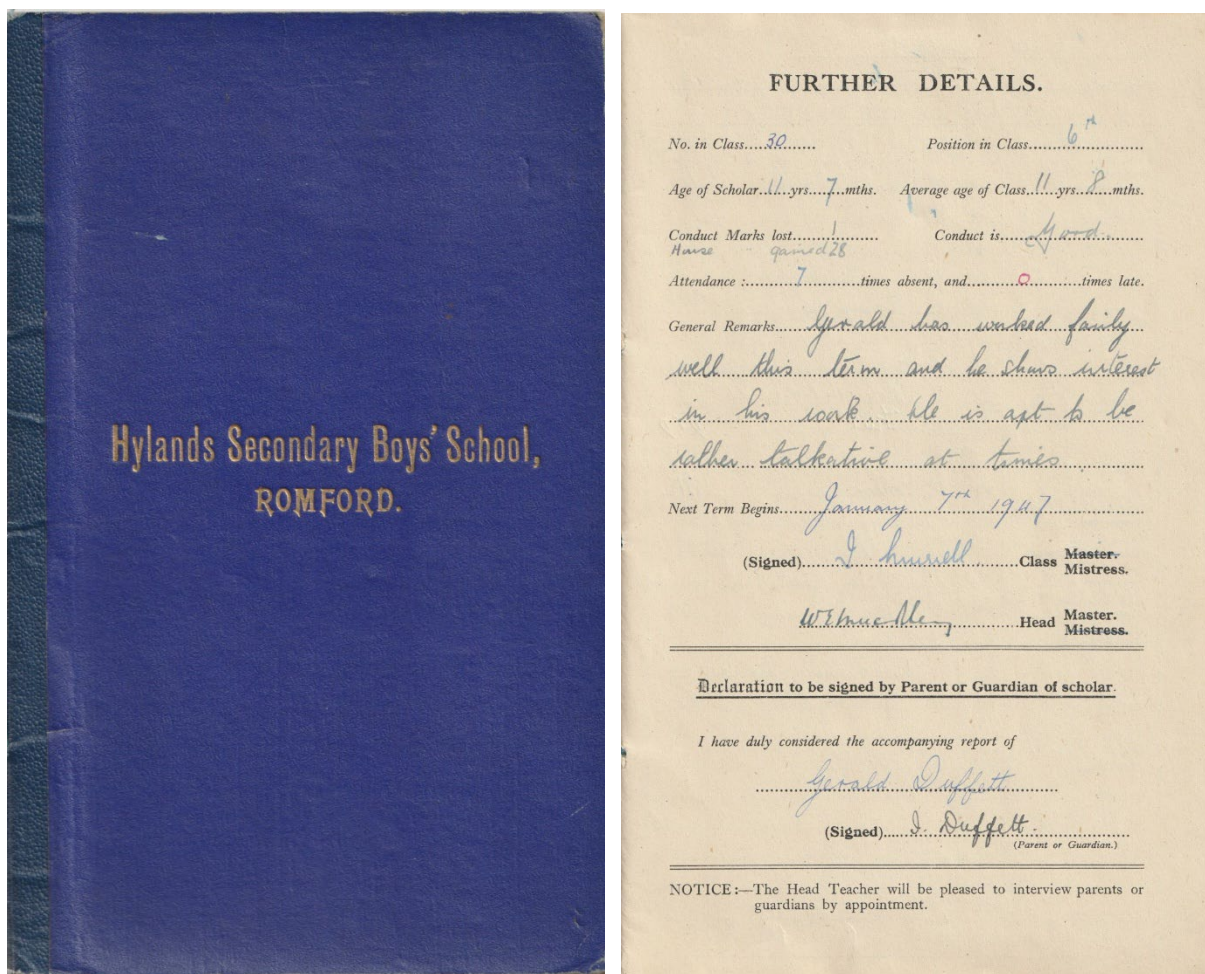 Hylands Secondary Boys' School,
ROMFORD.
FURTHER DETAILS.
No. in Class....30...... Position in Class......6th......
Age of Scholar..11..yrs...7..mths. Average age of Class..11..yrs..8..mths.
Conduct Marks lost......1...... Conduct is......Good......
House gained 28
Attendance :......7......times absent, and......0......times late.
General Remarks.....Gerald has worked fairly
well this term and he shows interest
in his work. He is apt to be
rather talkative at times
Next Term Begins......January 7th 1947
(Signed)...... I ......Class Master. Mistress.
......Head Master. Mistress.
Declaration to be signed by Parent or Guardian of scholar.
I have duly considered the accompanying report of
Gerald Duffett
(Signed)......I. Duffett.
(Parent or Guardian.)
NOTICE :—The Head Teacher will be pleased to interview parents or
guardians by appointment.